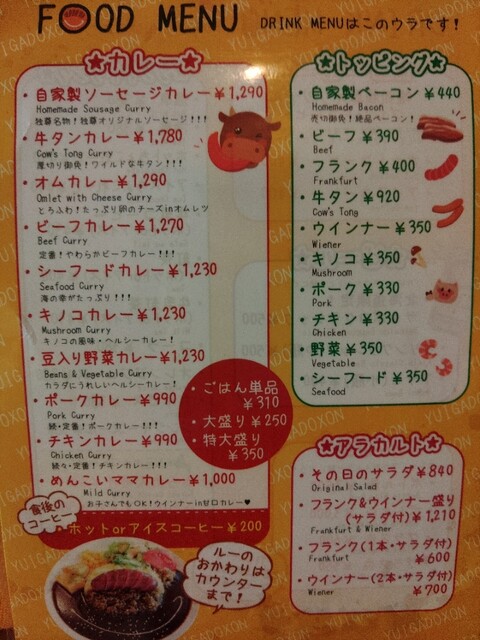 FOOD MENU
DRINK MENUはこのウラです!
★カレー★
・自家製ソーセージカレー ¥1,290
Homemade Sousage Curry
独尊名物!独尊オリジナルソーセージ!!!
・牛タンカレー ¥1,780
Cow's Tong Curry
厚切り御免!ワイルドな牛タン!!!
・オムカレー ¥1,290
Omlet with Cheese Curry
とろふわ!たっぷり卵のチーズinオムレツ
・ビーフカレー ¥1,270
Beef Curry
定番!やわらかビーフカレー!!!
・シーフードカレー ¥1,230
Seafood Curry
海の幸がたっぷり!!!
・キノコカレー ¥1,230
Mushroom Curry
キノコの風味・ヘルシーカレー!
・豆入り野菜カレー ¥1,230
Beans & Vegetable Curry
カラダにうれしいヘルシーカレー!
・ポークカレー ¥990
Pork Curry
続・定番!ポークカレー!!!
・チキンカレー ¥990
Chicken Curry
続々・定番!チキンカレー!!!
・めんこいママカレー ¥1,000
Mild Curry
お子さんでもOK!ウインナーin甘口カレー♥
・ごはん単品
¥310
・大盛り ¥250
・特大盛り
¥350
食後の
コーヒー
・ホットorアイスコーヒー ¥200
ルーの
おかわりは
カウンター
まで!
★トッピング★
・自家製ベーコン ¥440
Homemade Bacon
売切御免!絶品ベーコン!
・ビーフ ¥390
Beef
・フランク ¥400
Frankfurt
・牛タン ¥920
Cow's Tong
・ウインナー ¥350
Wiener
・キノコ ¥350
Mushroom
・ポーク ¥330
Pork
・チキン ¥330
Chicken
・野菜 ¥350
Vegetable
・シーフード ¥350
Seafood
★アラカルト★
・その日のサラダ ¥840
Original Salad
・フランク&ウインナー盛り
(サラダ付) ¥1,210
Frankfurt & Wiener
・フランク(1本・サラダ付)
Frankfurt ¥600
・ウインナー(2本・サラダ付)
Wiener ¥700
YUIGADOXON